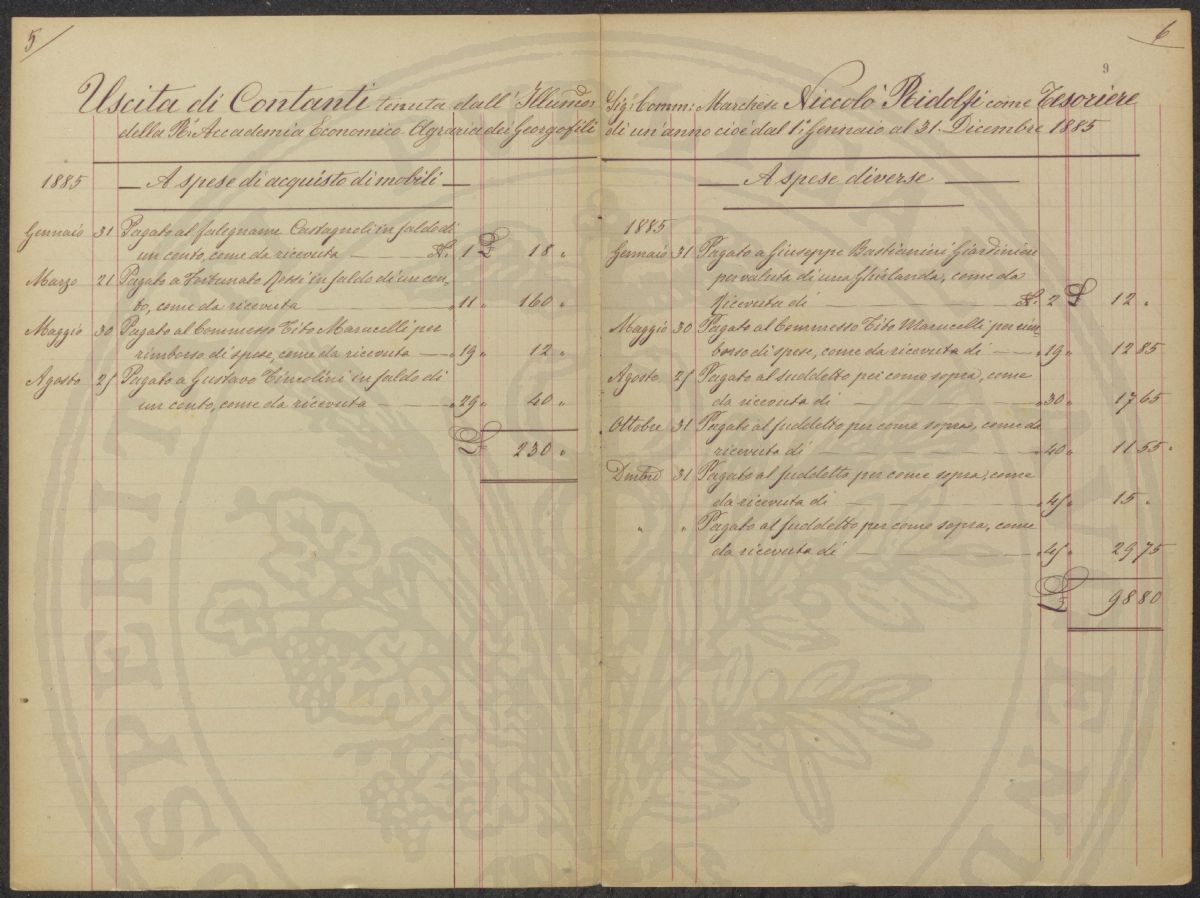 5
Uscita di Contanti tenuta dall' Illũmo
della Rª Accademia Economico Agraria dei Georgofili
1885 A spese di acquisto di mobili
Gennaio 31 Pagato al falegname Castagnoli in saldo di
un conto, come da ricevuta N. 1 £ 18 "
Marzo 21 Pagato a Fortunato Rossi in saldo di un con-
to, come da ricevuta " 11 " 160 "
Maggio 30 Pagato al Commesso Tito Marucelli per
rimborso di spese, come da ricevuta " 19 " 12 "
Agosto 25 Pagato a Gustavo Tincolini in saldo di
un conto, come da ricevuta " 29 " 40 "
£ 230 "
6
9
Sigr Comm: Marchese Niccolò Ridolfi come Tesoriere
di un'anno cioè dal 1° Gennaio al 31. Dicembre 1885
A spese diverse
1885
Gennaio 31 Pagato a Giuseppe Bastianini Giardiniere
per valuta di una Ghirlanda, come da
ricevuta di N. 2 £ 12 "
Maggio 30 Pagato al Commesso Tito Marucelli per rim-
borso di spese, come da ricevuta di " 19 " 12 85
Agosto 25 Pagato al suddetto per come sopra, come
da ricevuta di " 30 " 17 65
Ottobre 31 Pagato al suddetto per come sopra, come da
ricevuta di " 40 " 11 55
Dmbre 31 Pagato al suddetto per come sopra, come
da ricevuta di " 45 " 15 "
" " Pagato al suddetto per come sopra, come
da ricevuta di " 45 " 29 75
£ 98 80